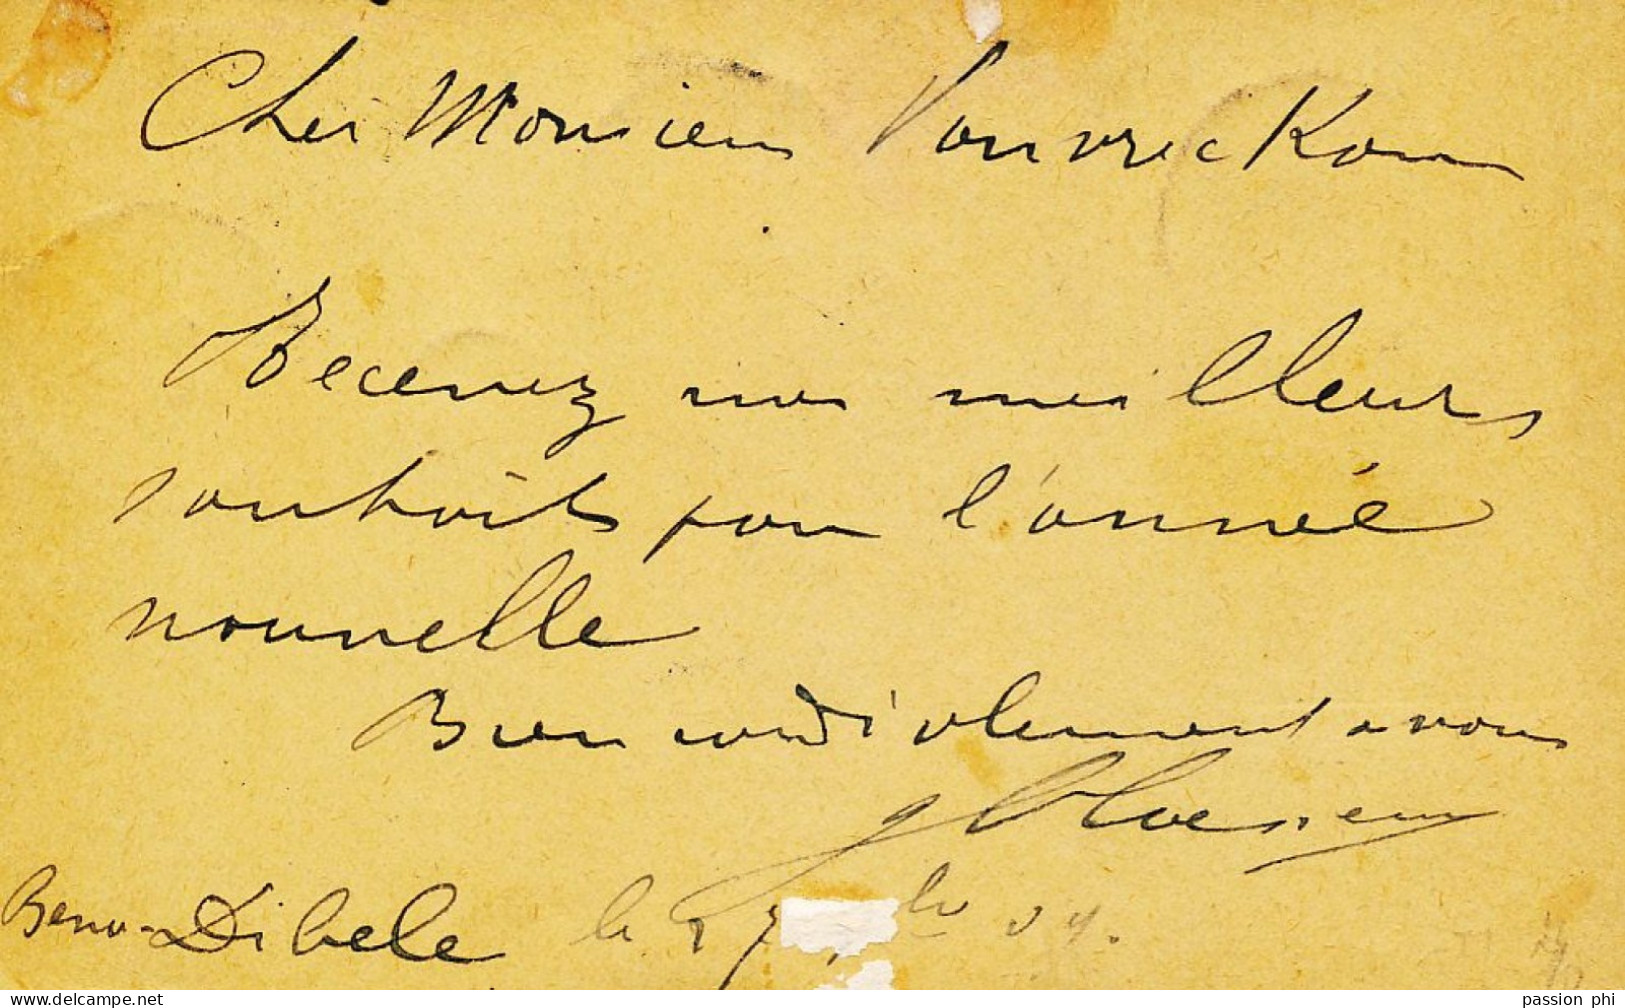 Cher Monsieur Vanvreckom
Recevez mes meilleurs
souhaits pour l'année
nouvelle
Bien cordialement a vous
Bena-Dibele le 27 04.
www.delcampe.net
passion phi